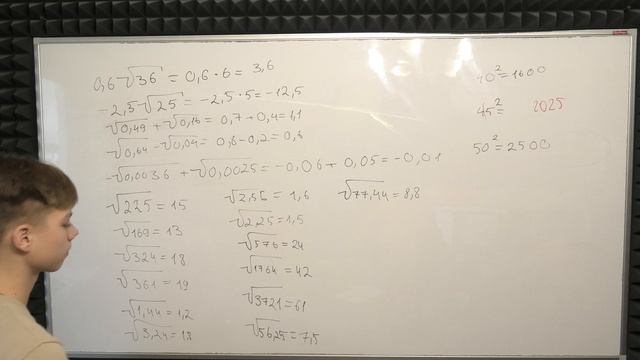 0,6√36 = 0,6·6 = 3,6
-2,5√25 = -2,5·5 = -12,5
√0,49 + √0,16 = 0,7 + 0,4 = 1,1
√0,64 - √0,04 = 0,8 - 0,2 = 0,6
-√0,0036 + √0,0025 = -0,06 + 0,05 = -0,01
√225 = 15
√169 = 13
√324 = 18
√361 = 19
√1,44 = 1,2
√3,24 = 1,8
√2,56 = 1,6
√2,25 = 1,5
√576 = 24
√1764 = 42
√3721 = 61
√56,25 = 7,5
√77,44 = 8,8
40² = 1600
45² = 2025
50² = 2500